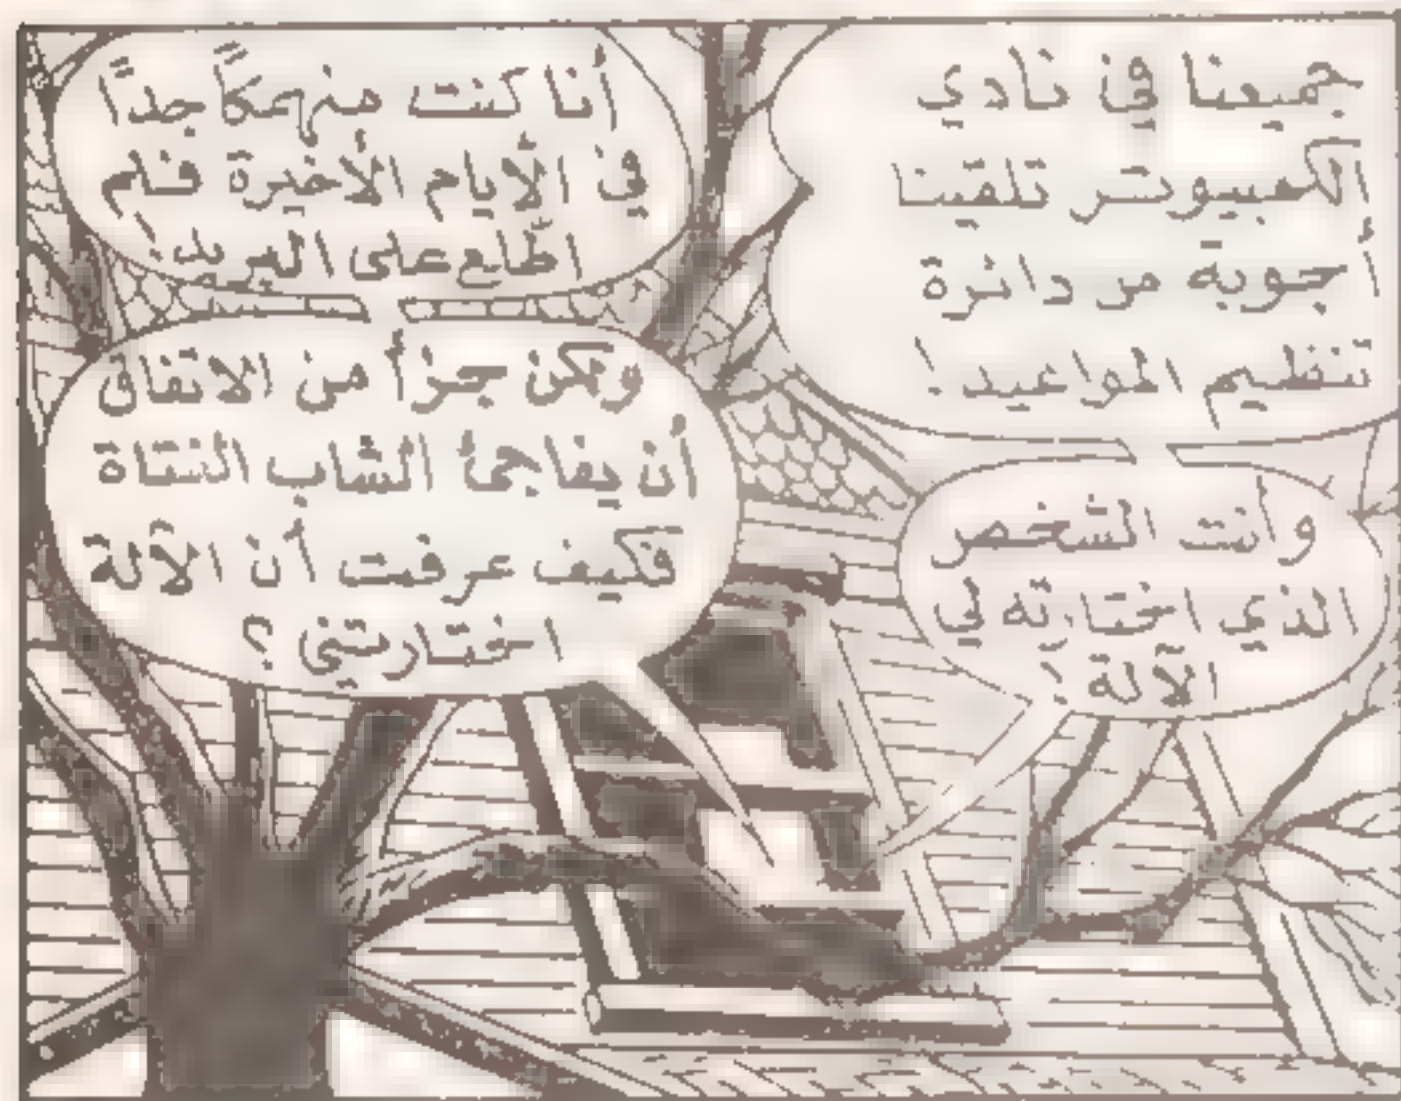 جميعنا في نادي
الكمبيوتر تلقينا
أجوبة من دائرة
تنظيم المواعيد !
وأنت الشخص
الذي اختارته لي
الآلة !
أنا كنت منهمكًا جدًا
في الأيام الأخيرة فلم
اطّلع على البريد !
ولكن جزأ من الاتفاق
أن يفاجئ الشاب الفتاة
فكيف عرفت أن الآلة
اختارتني ؟